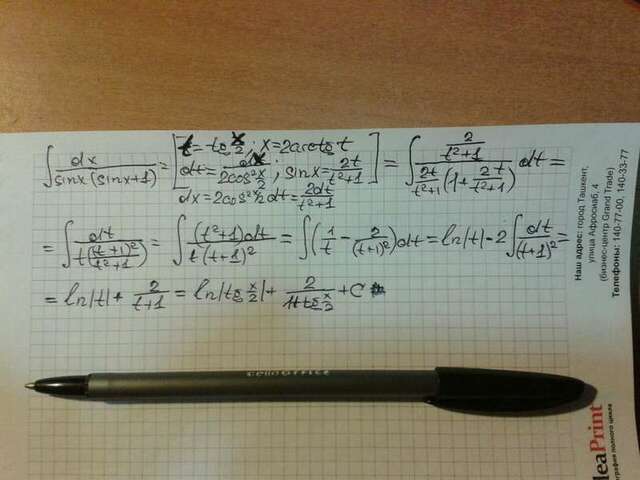 ∫ dx / (sinx(sinx+1)) = [t = tg x/2; x = 2arctg t
dt = dx / (2cos² x/2); sinx = 2t / (t²+1)] = ∫ (2/(t²+1)) / ((2t/(t²+1))(1 + 2t/(t²+1))) dt =
dx = 2cos² x/2 dt = 2dt / (t²+1)
= ∫ dt / (t((t+1)²/(t²+1))) = ∫ (t²+1)dt / (t(t+1)²) = ∫(1/t - 2/(t+1)²)dt = ln|t| - 2∫ dt/(t+1)² =
= ln|t| + 2/(t+1) = ln|tg x/2| + 2/(1+tg x/2) + C
cello OFFICE
Наш адрес: город Ташкент,
улица Афросиаб, 4
(бизнес-центр Grand Trade)
Телефоны: 140-77-00, 140-33-77
deaPrint
ография полного цикла